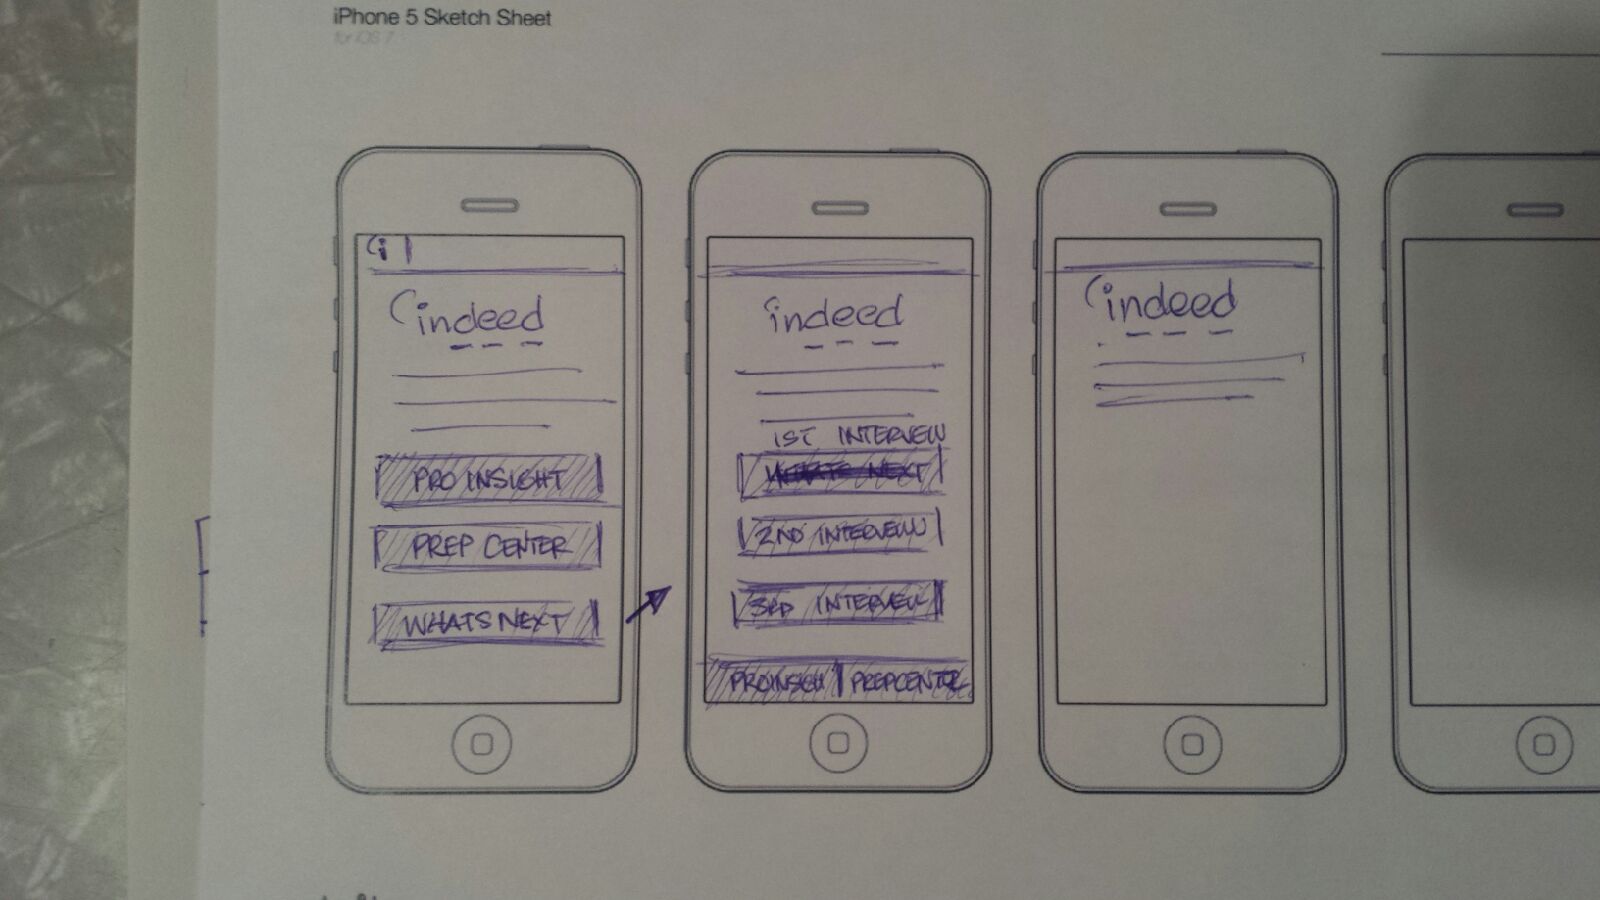 iPhone 5 Sketch Sheet
for iOS 7
i
indeed
PRO INSIGHT
PREP CENTER
WHATS NEXT
indeed
1ST INTERVEIW
WHATS NEXT
2ND INTERVEIW
3RD INTERVEIW
PROINSIGH PREPCENTER
indeed